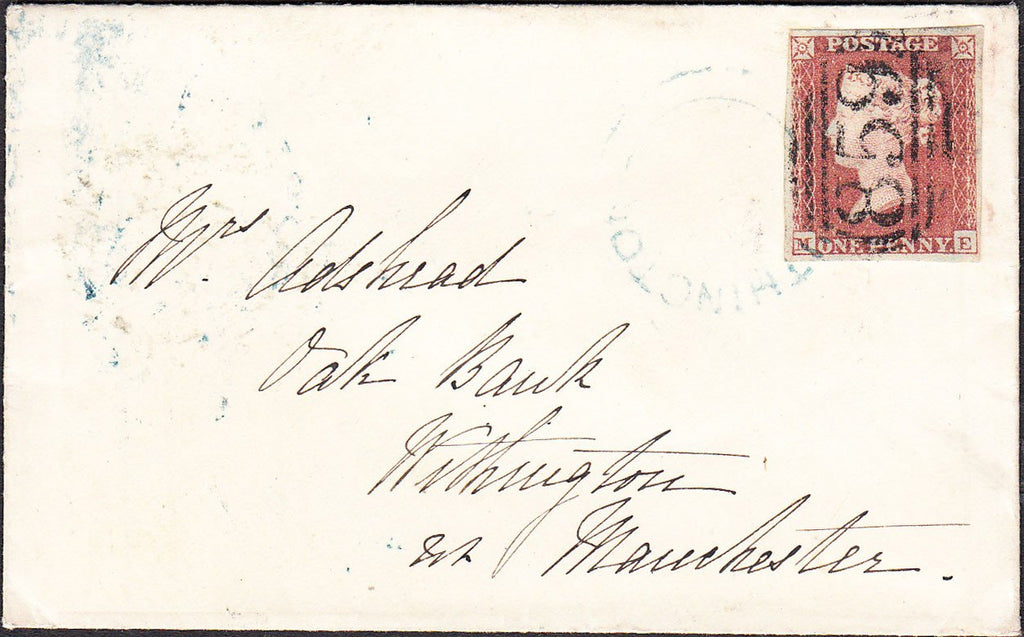 POSTAGE
859
M ONE PENNY E
Mrs. Adshead
Oak Bank
Withington
nr Manchester.